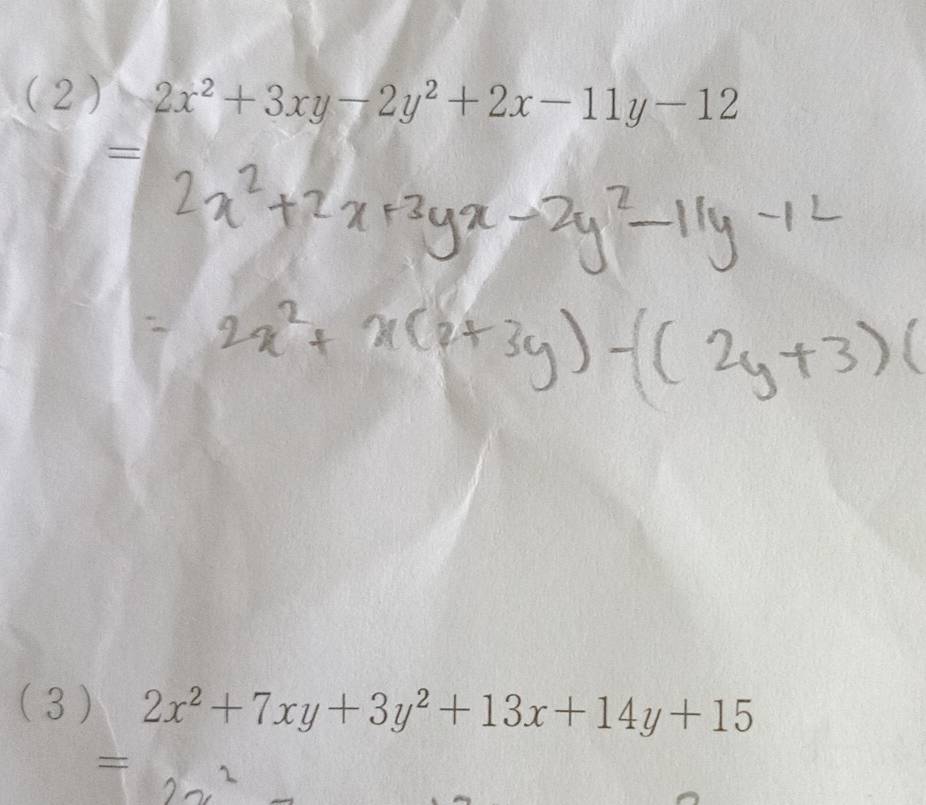 (2) 2x²+3xy−2y²+2x−11y−12
=
2x²+2x+3yx−2y²−11y−12
= 2x²+x(2+3y)−((2y+3)(
(3) 2x²+7xy+3y²+13x+14y+15
=
2x²